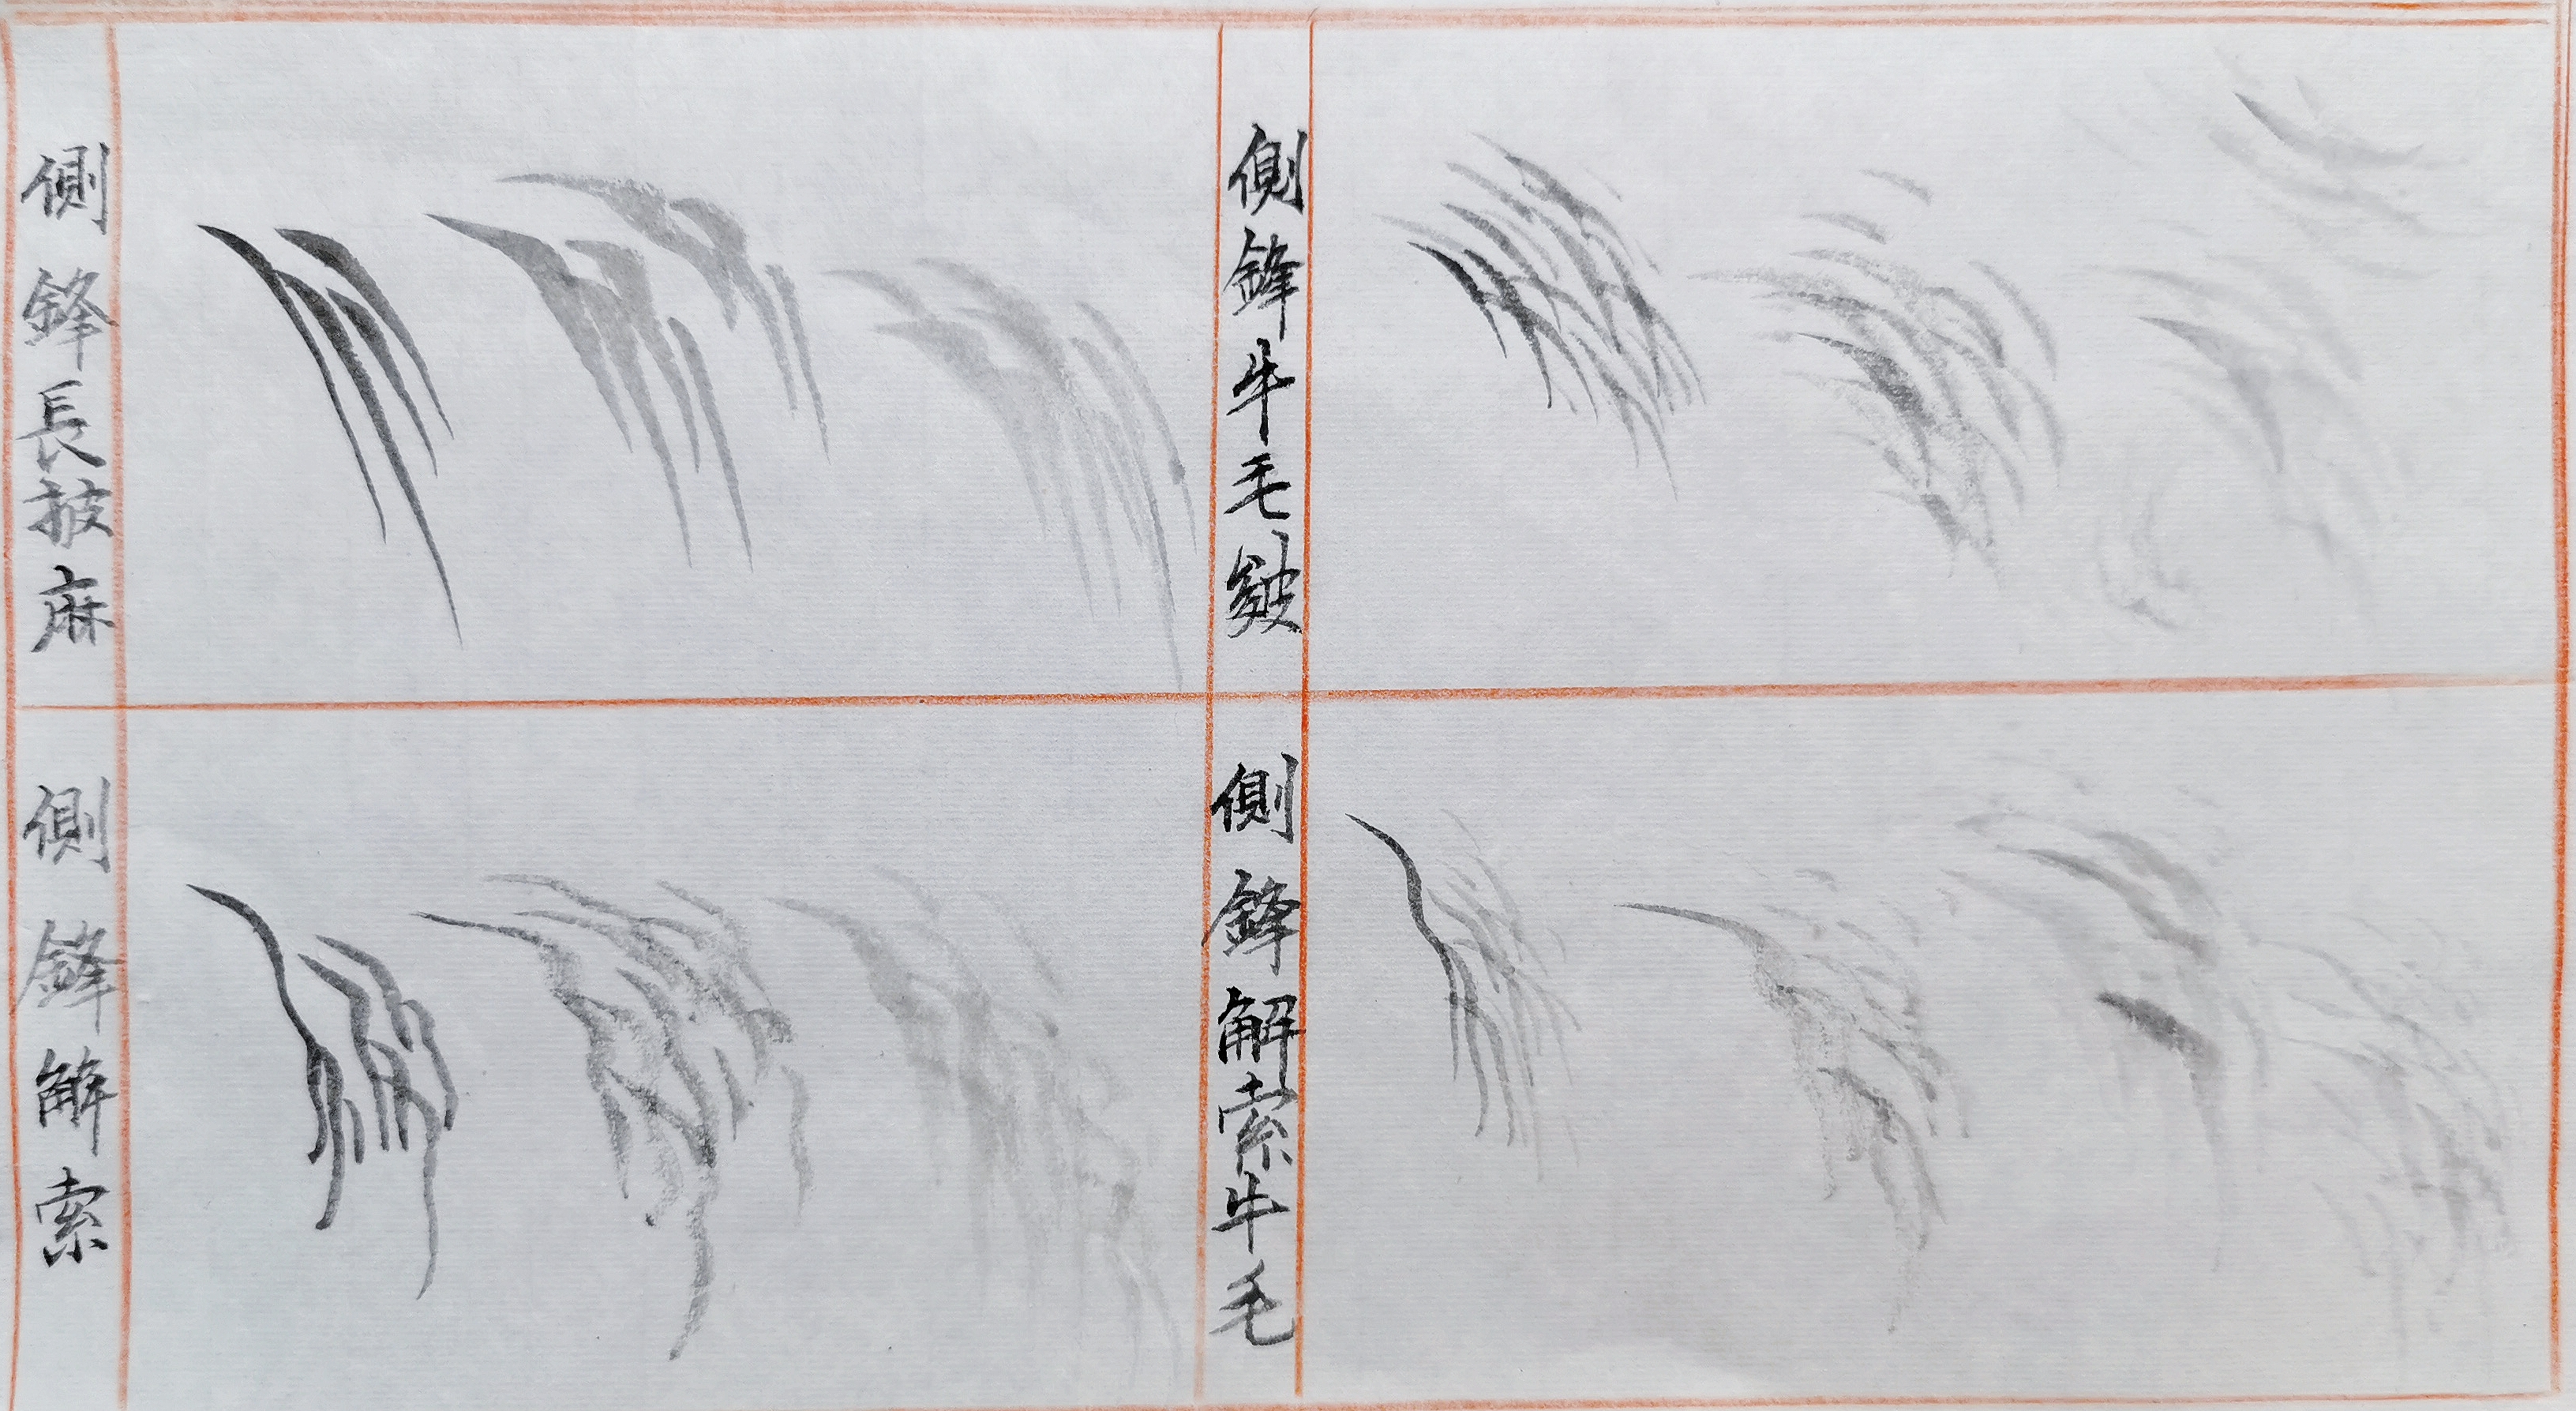 側鋒長披麻
側鋒牛毛皴
側鋒解索
側鋒解索牛毛